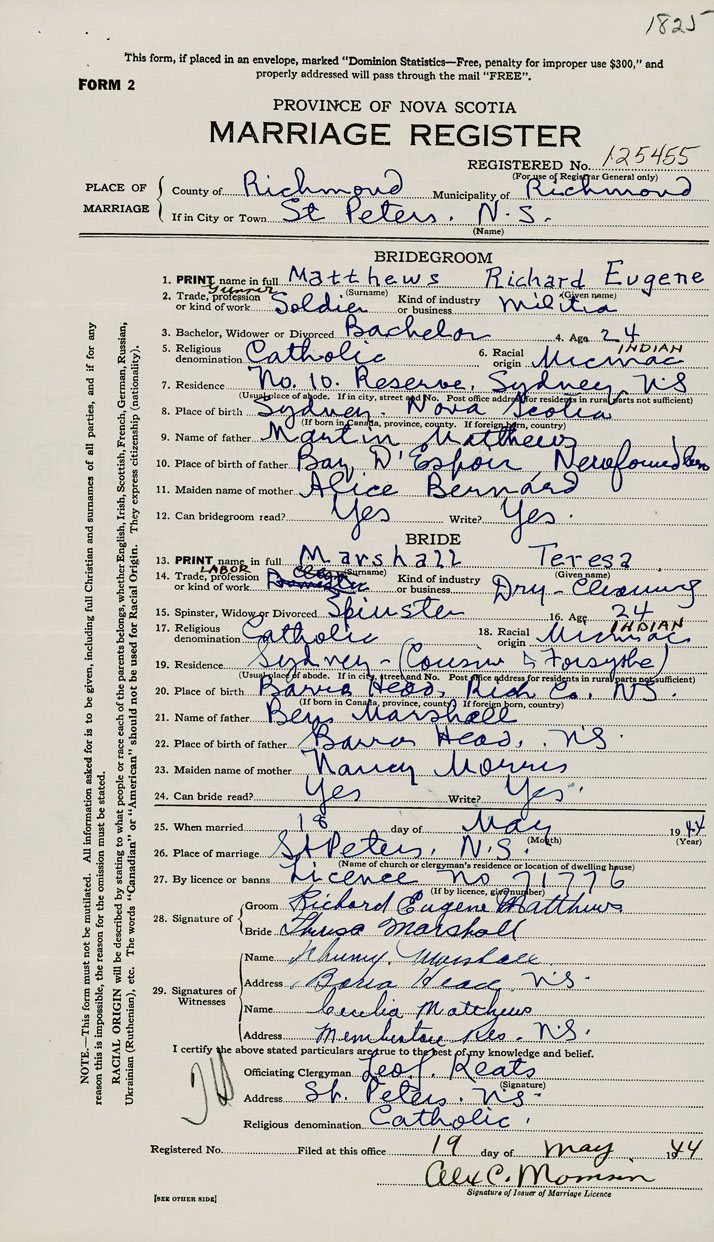 1825
This form, if placed in an envelope, marked "Dominion Statistics—Free, penalty for improper use $300," and
properly addressed will pass through the mail "FREE".
FORM 2
PROVINCE OF NOVA SCOTIA
MARRIAGE REGISTER
REGISTERED No. 125455
(For use of Registrar General only)
PLACE OF MARRIAGE
County of Richmond Municipality of Richmond
If in City or Town St Peters. N.S.
(Name)
BRIDEGROOM
1. PRINT name in full Matthews Richard Eugene
(Surname) (Given name)
Gunner
2. Trade, profession or kind of work Soldier Kind of industry or business Militia
3. Bachelor, Widower or Divorced Bachelor 4. Age 24
INDIAN
5. Religious denomination Catholic 6. Racial origin Micmac
7. Residence No. 10. Reserve, Sydney, NS
(Usual place of abode. If in city, street and No. Post office address for residents in rural parts not sufficient)
8. Place of birth Sydney. Nova Scotia
(If born in Canada, province, county. If foreign born, country)
9. Name of father Martin Matthews
10. Place of birth of father Bay D'Espoir
11. Maiden name of mother Alice Bernard
12. Can bridegroom read? Yes Write? Yes.
BRIDE
13. PRINT name in full Marshall Teresa
(Surname) (Given name)
LABOR
14. Trade, profession or kind of work Kind of industry or business Dry-Cleaning
15. Spinster, Widow or Divorced Spinster 16. Age 24
INDIAN
17. Religious denomination Catholic 18. Racial origin Micmac
19. Residence Sydney - (Cousin & Forsythe)
(Usual place of abode. If in city, street and No. Post office address for residents in rural parts not sufficient)
20. Place of birth Barra Head, Rich Co. NS.
(If born in Canada, province, county. If foreign born, country)
21. Name of father Ben Marshall
22. Place of birth of father Barra Head, NS.
23. Maiden name of mother Nancy Morris
24. Can bride read? Yes Write? Yes.
25. When married 18 day of May 1944
(Month) (Year)
26. Place of marriage St Peters, N.S.
(Name of church or clergyman's residence or location of dwelling house)
27. By licence or banns Licence No 71776
(If by licence, give number)
28. Signature of
Groom Richard Eugene Matthews
Bride Theresa Marshall
29. Signatures of Witnesses
Name Johnny Marshall
Address Barra Head NS.
Name Cecilia Matthews
Address Membertou Res. NS.
I certify the above stated particulars are true to the best of my knowledge and belief.
Officiating Clergyman Leo J. Keats
(Signature)
Address St. Peters. NS.
Religious denomination Catholic.
Registered No. Filed at this office 19 day of May 1944
Alex C.
Signature of Issuer of Marriage Licence
[SEE OTHER SIDE]
NOTE.—This form must not be mutilated. All information asked for is to be given, including full Christian and surnames of all parties, and if for any
reason this is impossible, the reason for the omission must be stated.
RACIAL ORIGIN will be described by stating to what people or race each of the parents belongs, whether English, Irish, Scottish, French, German, Russian,
Ukrainian (Ruthenian), etc. The words "Canadian" or "American" should not be used for Racial Origin. They express citizenship (nationality).